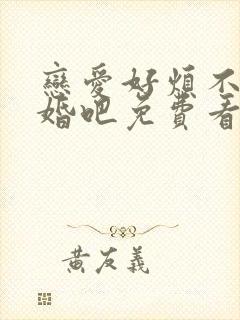 戀愛好煩不
婚吧免費看
黃友義